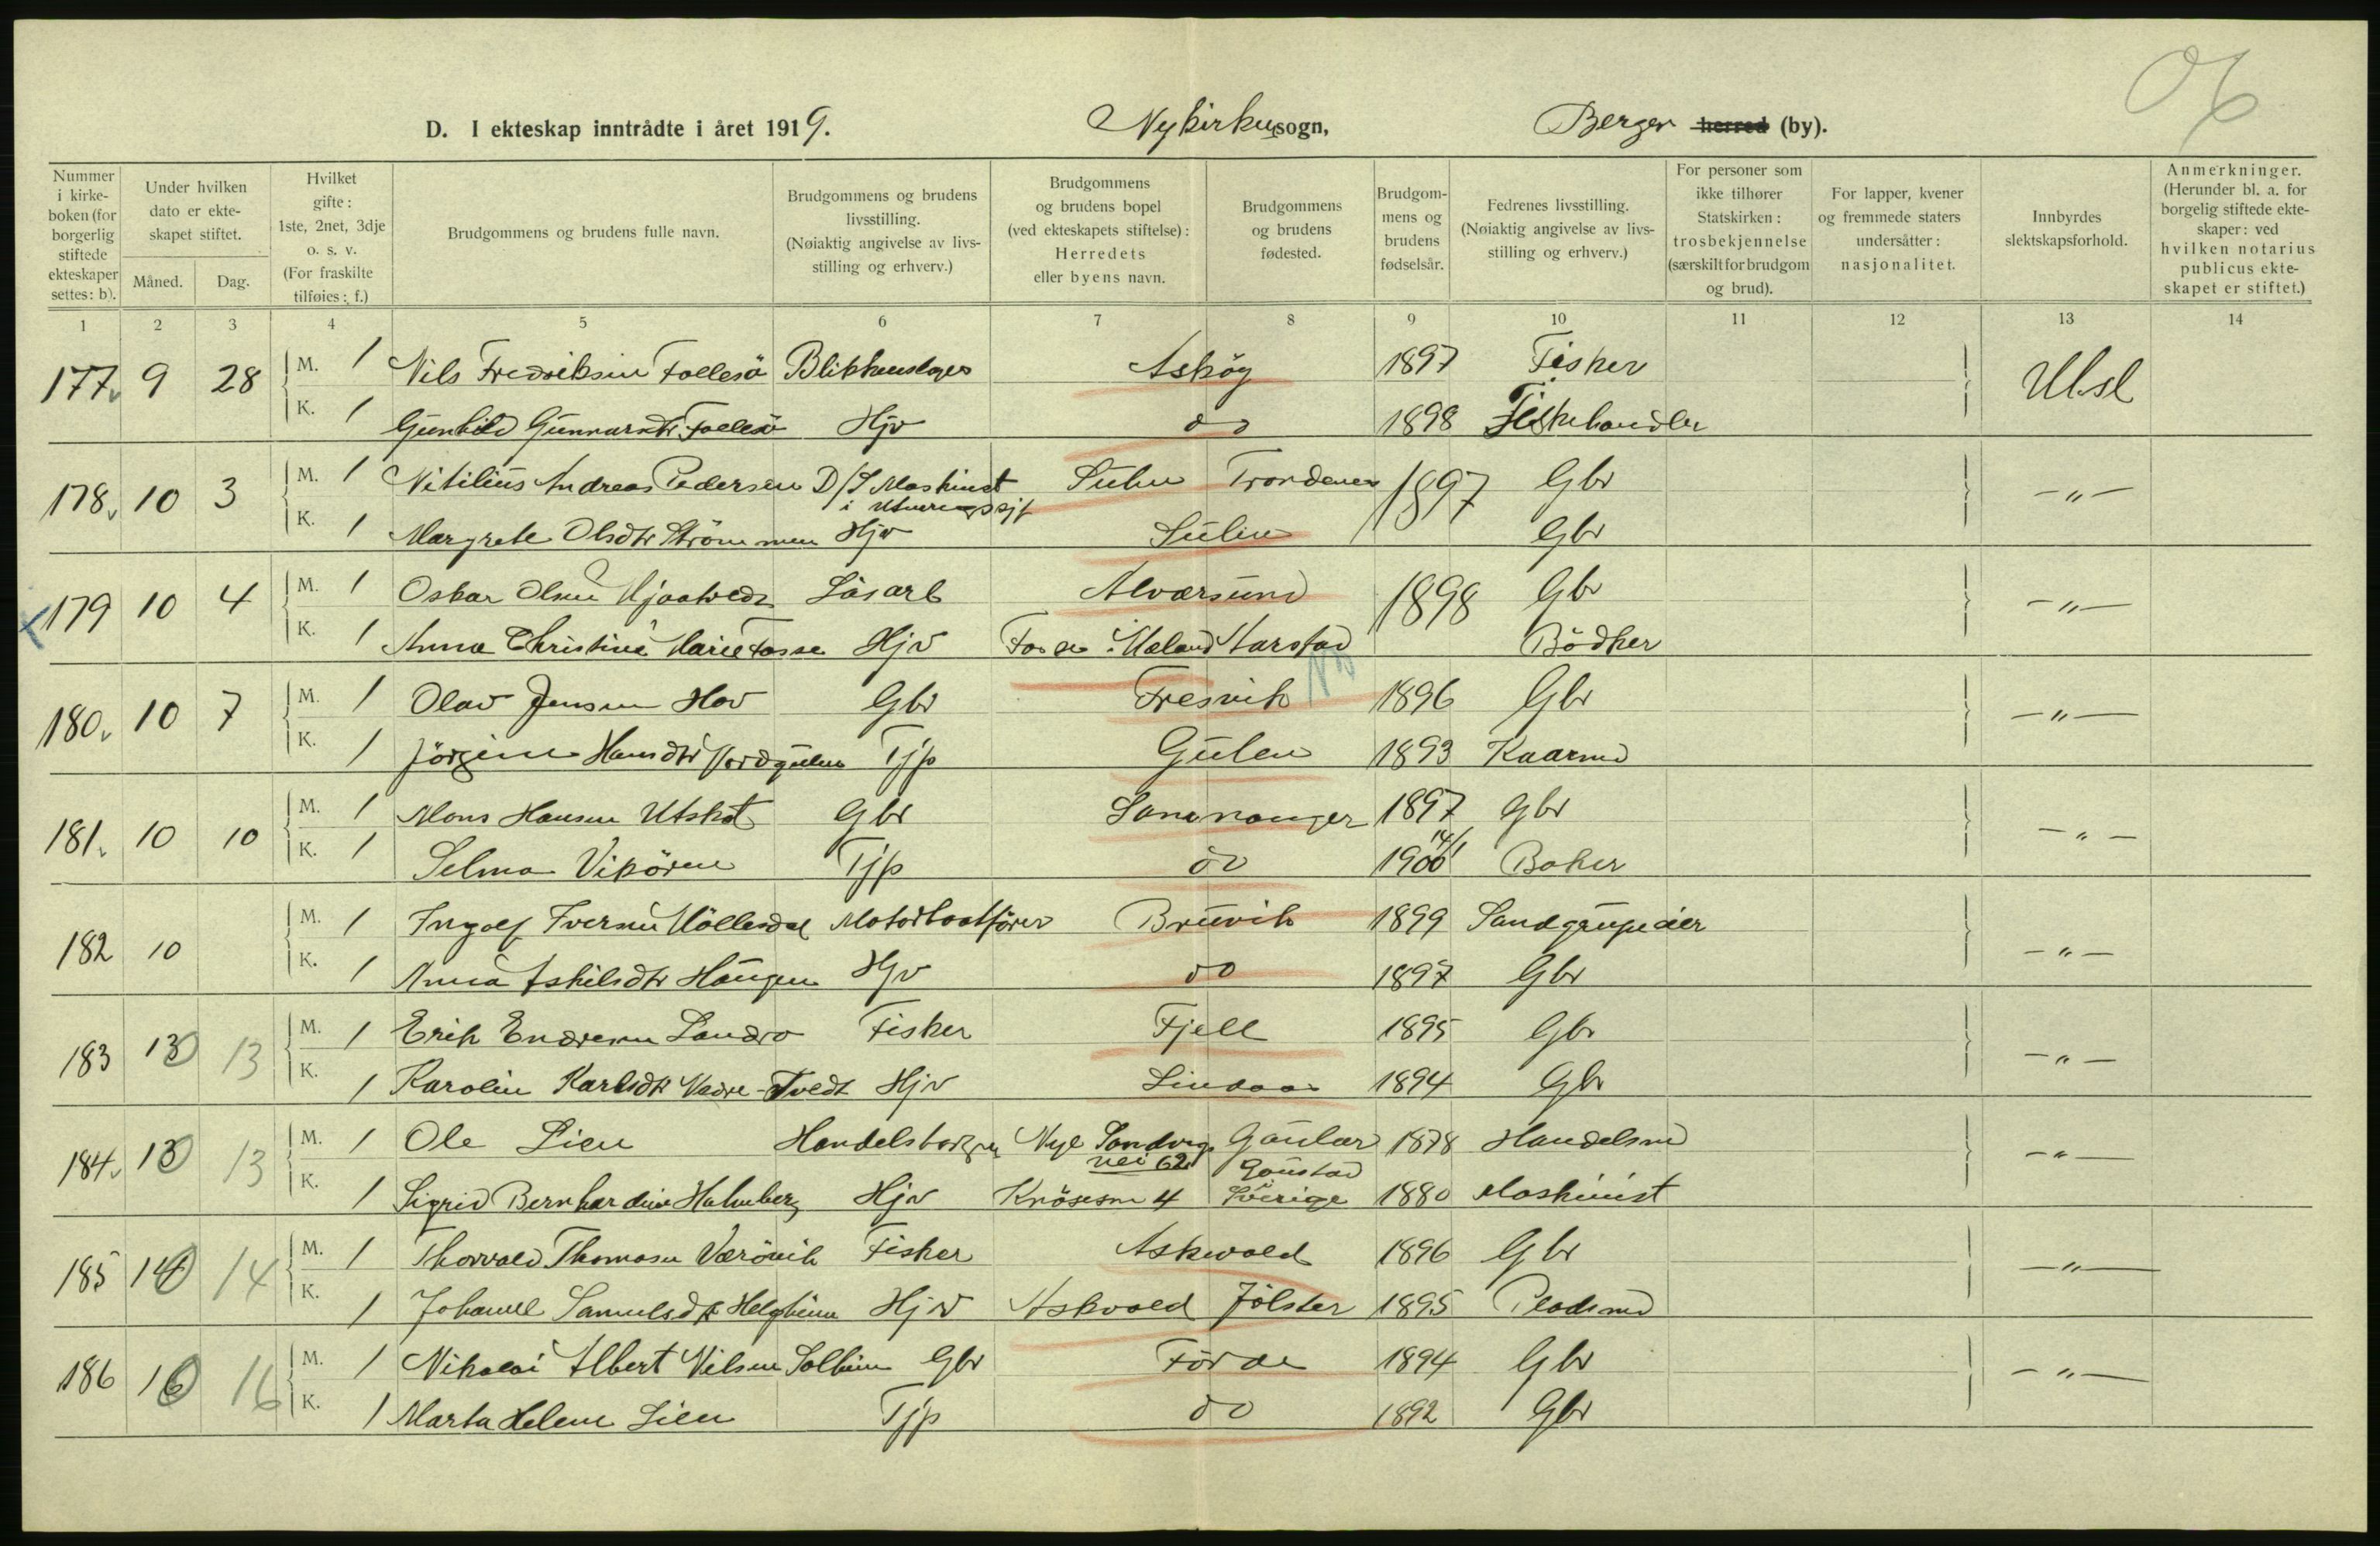 D. I ekteskap inntrådte i året 1919. Nykirke sogn, Bergen herred (by).
Nummer i kirkeboken (for borgerlig stiftede ekteskaper settes: b).
Under hvilken dato er ekteskapet stiftet.
Måned. Dag.
Hvilket gifte: 1ste, 2net, 3dje o. s. v. (For fraskilte tilføies: f.)
Brudgommens og brudens fulle navn.
Brudgommens og brudens livsstilling. (Nøiaktig angivelse av livsstilling og erhverv.)
Brudgommens og brudens bopel (ved ekteskapets stiftelse): Herredets eller byens navn.
Brudgommens og brudens fødested.
Brudgommens og brudens fødselsår.
Fedrenes livsstilling. (Nøiaktig angivelse av livsstilling og erhverv.)
For personer som ikke tilhører Statskirken: trosbekjennelse (særskilt for brudgom og brud).
For lapper, kvener og fremmede staters undersåtter: nasjonalitet.
Innbyrdes slektskapsforhold.
Anmerkninger. (Herunder bl. a. for borgelig stiftede ekteskaper: ved hvilken notarius publicus ekteskapet er stiftet.)
1 2 3 4 5 6 7 8 9 10 11 12 13 14
177 9 28 M. 1 Nils Fredriksen Follesö Blikkenslager Asköy 1897 Fisker Ubsl
K. 1 Gunhild Gunnarsdtr Follesö Hjv do 1898 Fiskehandler
178 10 3 M. 1 Andreas Pedersen D/S Maskinist Sulen Trondenes 1897 Gbr -"-
K. 1 Margrete Olsdtr Strömmen Hjv Sulen Gbr
179 10 4 M. 1 Oskar Olsen Løsarb Alversund 1898 Gbr -"-
K. 1 Anna Christine Marie Fosse Hjv Fosse Harstad Bödker
180 10 7 M. 1 Olav Jensen Hov Gbr Fresvik 1896 Gbr -"-
K. 1 Jörgine Hansdtr Nordgulen Tjp Gulen 1893 Kaarmd
181 10 10 M. 1 Mons Hansen Utskot Gbr Samnanger 1897 Gbr -"-
K. 1 Selma Vikören Tjp do 1900 14/1 Baker
182 10 M. 1 Ingolf Iversen Möllesdal Motorbaatförer Bruvik 1899 Sandgrupeeier -"-
K. 1 Anna Askilsdtr Haugen Hjv do 1897 Gbr
183 10 13 M. 1 Erik Endresen Landro Fisker Fjell 1895 Gbr -"-
K. 1 Karolin Karlsdtr Tvedt Hjv Lindaas 1894 Gbr
184 10 13 M. 1 Ole Lien Handelsborger Nye Sandvigsvei 62 Gaular 1878 Handelsmd -"-
K. 1 Sigrid Bernhardine Holmberg Hjv Knösesm 4 Sverige 1880 Maskinist
185 10 14 M. 1 Thorvald Thomasen Værövik Fisker Askvold 1896 Gbr -"-
K. 1 Johanne Samulsdtr Helgheim Hjv Askvold Jölster 1895 Pladsmd
186 10 16 M. 1 Nikolai Albert Nilsen Solheim Gbr Förde 1894 Gbr -"-
K. 1 Marta Helene Lien Tjp do 1892 Gbr